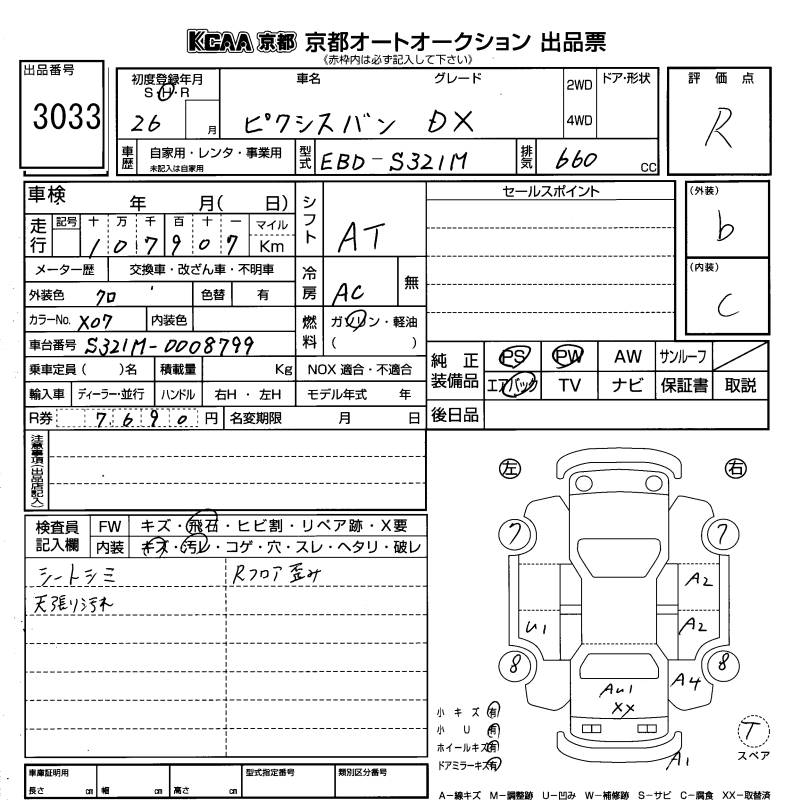 KCAA 京都 京都オートオークション 出品票
《赤枠内は必ず記入して下さい》
出品番号
3033
初度登録年月
S・H・R
26 月
車名
グレード
ピクシスバン DX
2WD
4WD
ドア・形状
評価点
R
車歴
自家用・レンタ・事業用
未記入は自家用
型式
EBD-S321M
排気
660 CC
車検 年 月( 日)
走行
記号 十 万 千 百 十 一 マイル
1 0 7 9 0 7 Km
シフト
AT
セールスポイント
(外装)
b
(内装)
C
メーター歴 交換車・改ざん車・不明車
外装色 クロ 色替 有
冷房
AC
無
カラーNo. X07 内装色
燃料
ガソリン・軽油
( )
車台番号 S321M-0008799
乗車定員 ( )名 積載量 Kg NOX 適合・不適合
輸入車 ディーラー・並行 ハンドル 右H・左H モデル年式 年
R券 7,690 円 名変期限 月 日
純正装備品
PS PW AW サンルーフ
エアバック TV ナビ 保証書 取説
後日品
注意事項(出品店記入)
検査員記入欄
FW キズ・飛石・ヒビ割・リペア跡・X要
内装 キズ・汚レ・コゲ・穴・スレ・ヘタリ・破レ
シートシミ
Rフロア歪み
天張り汚れ
左
右
7
7
A2
U1
A2
8
8
A4
AU1
XX
A1
小キズ有
小U有
ホイールキズ有
ドアミラーキズ有
T
スペア
車庫証明用
長さ cm 幅 cm 高さ cm
型式指定番号
類別区分番号
A-線キズ M-調整跡 U-凹み W-補修跡 S-サビ C-腐食 XX-取替済